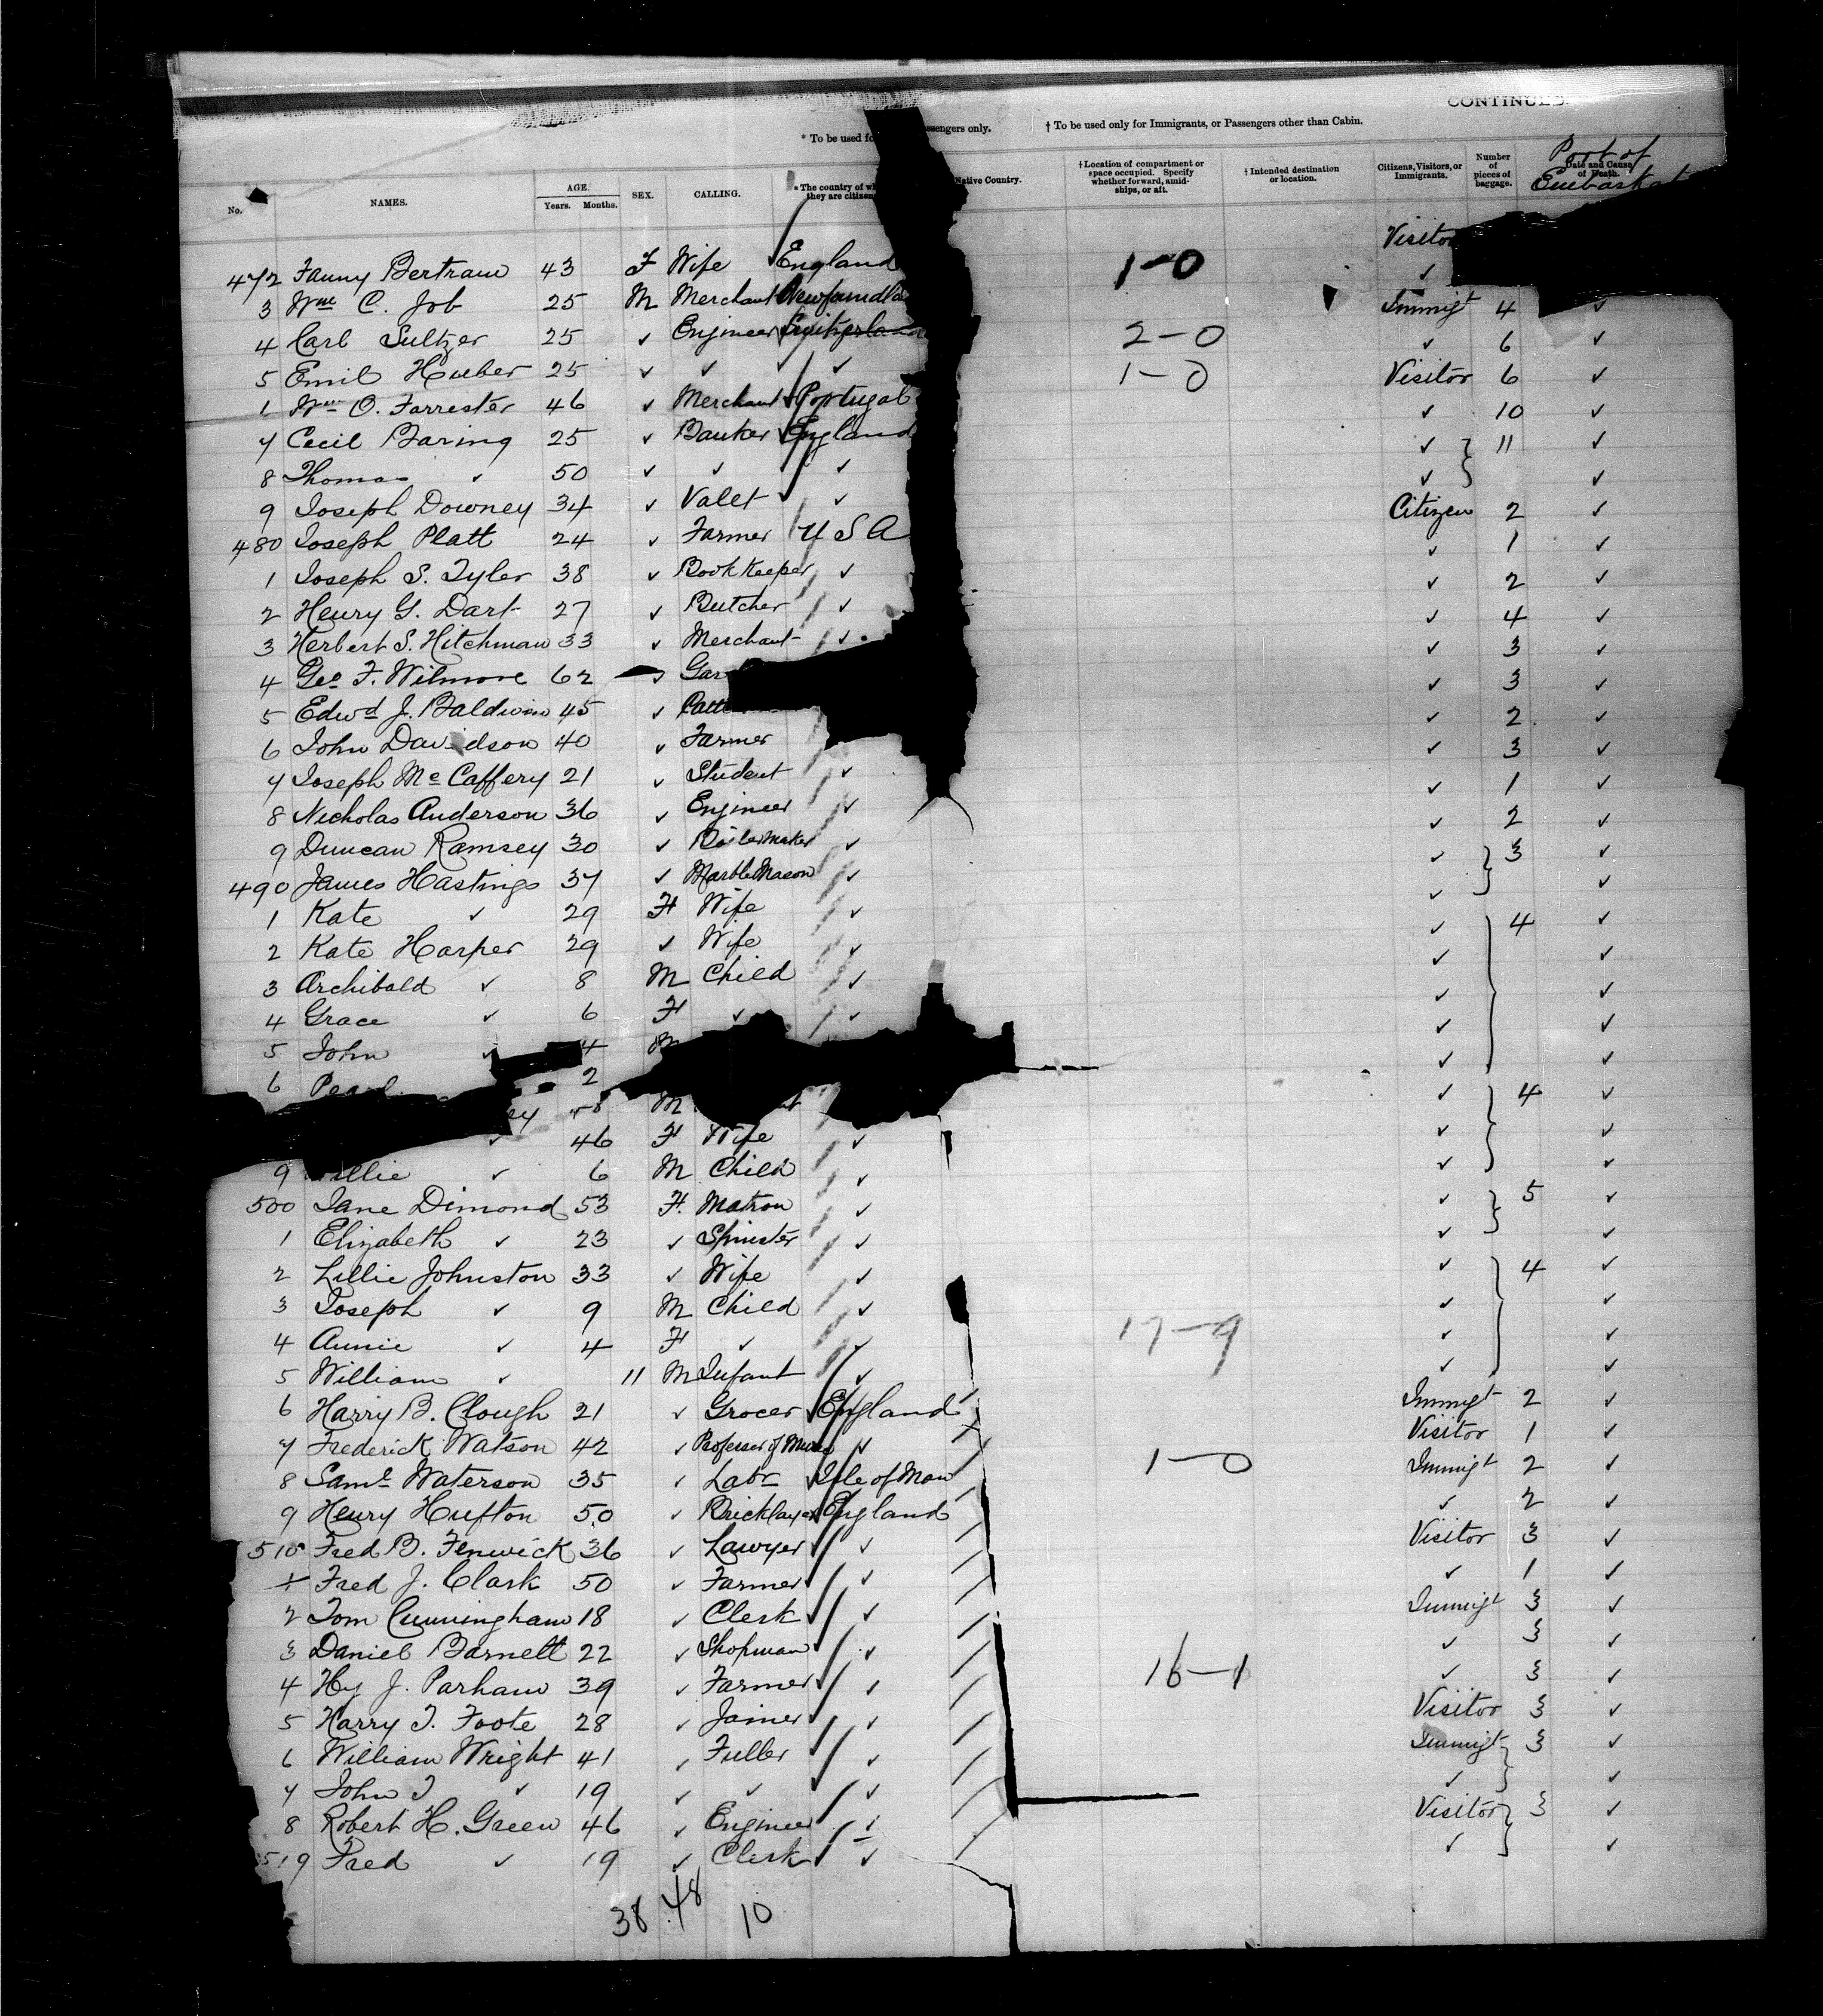 CONTINUED.
* To be used fo ssengers only. † To be used only for Immigrants, or Passengers other than Cabin.
No. NAMES. AGE. Years. Months. SEX. CALLING. * The country of wh they are citizen Native Country. † Location of compartment or space occupied. Specify whether forward, amidships, or aft. † Intended destination or location. Citizens, Visitors, or Immigrants. Number of pieces of baggage. Date and Cause of Death. Port of Embarkat
472 Fanny Bertram 43 F Wife England 1-0 Visitor
3 Wm C. Job 25 M Merchant Newfoundla ✓
4 Carl Sultzer 25 ✓ Engineer Switzerland 2-0 Immigt 4 ✓
5 Emil Hueber 25 ✓ ✓ ✓ ✓ 6 ✓
1 Wm O. Farrester 46 ✓ Merchant Portugal 1-0 Visitor 6 ✓
7 Cecil Baring 25 ✓ Banker England ✓ 10 ✓
8 Thomas ✓ 50 ✓ ✓ ✓ ✓ 11 ✓
9 Joseph Downey 34 ✓ Valet ✓ ✓ ✓
480 Joseph Platt 24 ✓ Farmer U S A Citizen 2 ✓
1 Joseph S. Tyler 38 ✓ Book Keeper ✓ ✓ 1 ✓
2 Henry G. Dart 27 ✓ Butcher ✓ ✓ 2 ✓
3 Herbert S. Hitchman 33 ✓ Merchant ✓ ✓ 4 ✓
4 Geo F. Wilmore 62 ✓ Gar ✓ 3 ✓
5 Edwd J. Baldwin 45 ✓ Patte ✓ 3 ✓
6 John Davidson 40 ✓ Farmer ✓ 2 ✓
7 Joseph McCaffery 21 ✓ Student ✓ ✓ 3 ✓
8 Nicholas Anderson 36 ✓ Engineer ✓ ✓ 1 ✓
9 Duncan Ramsey 30 ✓ Boiler Maker ✓ ✓ 2 ✓
490 James Hastings 37 ✓ Marble Mason ✓ ✓ 3 ✓
1 Kate ✓ 29 F Wife ✓ ✓ ✓
2 Kate Harper 29 ✓ Wife ✓ ✓ 4 ✓
3 Archibald ✓ 8 M Child ✓ ✓ ✓
4 Grace ✓ 6 F ✓ ✓ ✓ ✓
5 John ✓ 4 M ✓ ✓
6 Pearl 2 ✓ ✓
ey 58 M ✓ 4 ✓
✓ 46 F Wife ✓ ✓ ✓
9 Willie ✓ 6 M Child ✓ ✓ ✓
500 Jane Dimond 53 F. Matron ✓ ✓ 5 ✓
1 Elizabeth ✓ 23 ✓ Spinster ✓ ✓ ✓
2 Lillie Johnston 33 ✓ Wife ✓ ✓ 4 ✓
3 Joseph ✓ 9 M Child ✓ ✓ ✓
4 Annie ✓ 4 F ✓ ✓ 17-9 ✓ ✓
5 William ✓ 11 M Infant ✓ ✓ ✓
6 Harry B. Clough 21 ✓ Grocer England Immigt 2 ✓
7 Frederick Watson 42 ✓ Professor of Music ✓ Visitor 1 ✓
8 Saml Waterson 35 ✓ Labr Isle of Man 1-0 Immigt 2 ✓
9 Henry Hufton 50 ✓ Bricklayer England ✓ 2 ✓
510 Fred B. Fenwick 36 ✓ Lawyer ✓ Visitor 3 ✓
1 Fred J. Clark 50 ✓ Farmer ✓ ✓ 1 ✓
2 Tom Cunningham 18 ✓ Clerk ✓ Immigt 3 ✓
3 Daniel Barnett 22 ✓ Shopman ✓ ✓ 3 ✓
4 Hy J. Parham 39 ✓ Farmer ✓ 16-1 ✓ 3 ✓
5 Harry T. Foote 28 ✓ Joiner ✓ Visitor 3 ✓
6 William Wright 41 ✓ Fuller ✓ Immigt 3 ✓
7 John T ✓ 19 ✓ ✓ ✓ ✓ ✓
8 Robert H. Green 46 ✓ Engineer ✓ Visitor 3 ✓
519 Fred ✓ 19 ✓ Clerk ✓ ✓ ✓
38 48 10